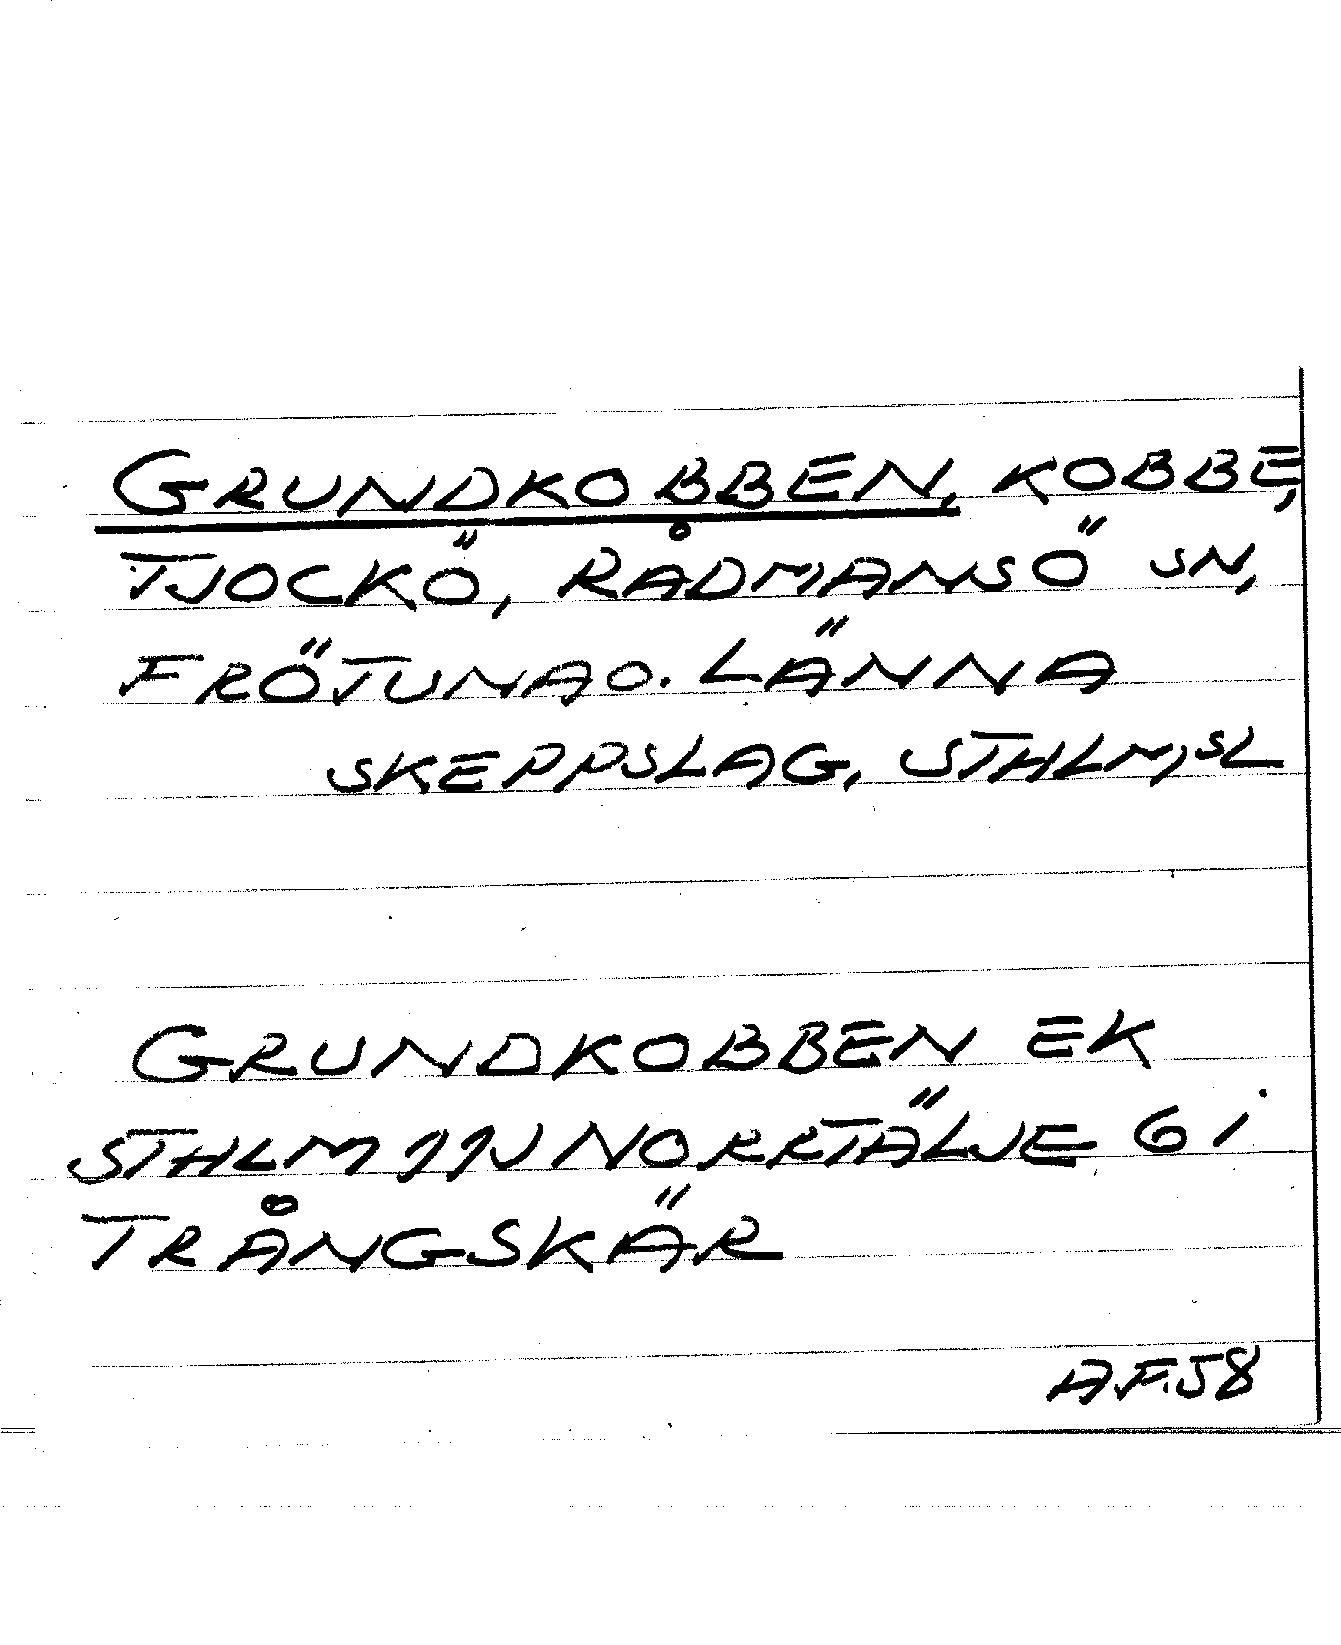 GRUNDKOBBEN, KOBBE,
TJOCKÖ, RÅDMANSÖ SN,
FRÖTUNA O. LÄNNA
SKEPPSLAG, STHLM, SL
GRUNDKOBBEN EK
STHLM 11J NORRTÄLJE 6 i
TRÅNGSKÄR
A.F. 58